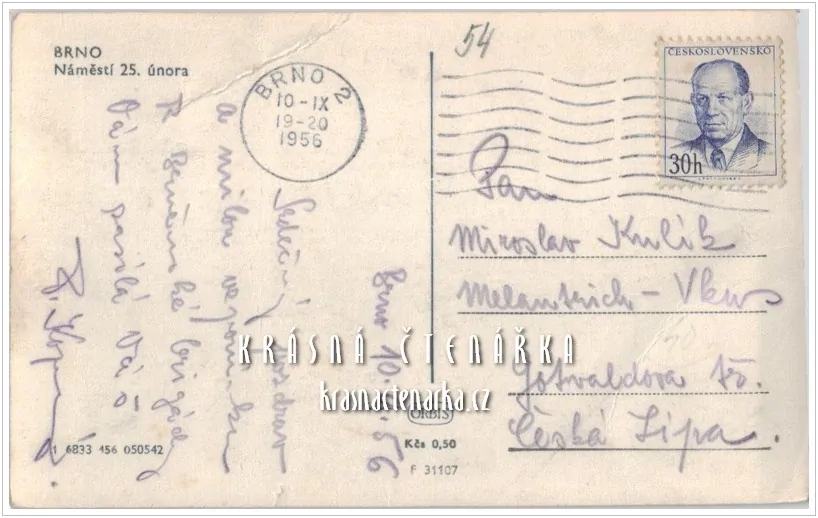 BRNO
Náměstí 25. února
54
BRNO 2
10-IX
19-20
1956
ČESKOSLOVENSKO
30h
Pan
Miroslav Kulík
Melantrich - Vkus
Gotwaldova tř.
Česká Lípa.
Brno 10. 56
Srdečný pozdrav
a milou vzpomínku
z Brněnské brigády
Vám posílá Váš
KRÁSNÁ ČTENÁŘKA
krasnactenarka.cz
ORBIS
Kčs 0,50
F 31107
1 6833 456 050542